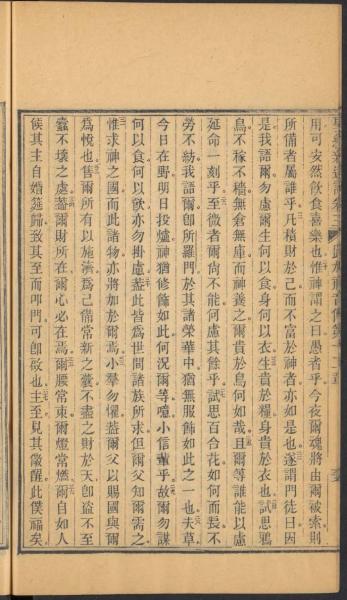 用可安然飲食喜樂也惟神謂之曰愚者乎今夜爾魂將由爾被索則
所備者屬誰乎凡積財於己而不富於神者亦如是也遂謂門徒曰因
是我語爾勿慮爾生何以食身何以衣生貴於糧身貴於衣也試思鴉
鳥不稼不穡無倉無庫而神養之爾貴於鳥何如哉且爾等誰能以慮
延命一刻乎至微者爾尙不能何慮其餘乎試思百合花如何而長不
勞不紡我語爾卽所羅門於其諸榮華中猶無服飾如此之一也夫草
今日在野明日投爐神猶修飾如此何況爾等噫小信輩乎故爾勿謀
何以食何以飲亦勿掛慮蓋此皆爲世間諸族所求但爾父知爾需之
惟求神之國而此諸物亦將加於爾焉小羣勿懼蓋爾父以賜國與爾
爲悅也售爾所有以施濟爲己備常新之囊不盡之財於天卽盜不至
蠹不壞之處蓋爾財所在爾心必在焉爾腰常束爾燈常燃爾自如人
俟其主自婚筵歸致其至而叩門可卽啟也主至見其儆醒此僕福矣